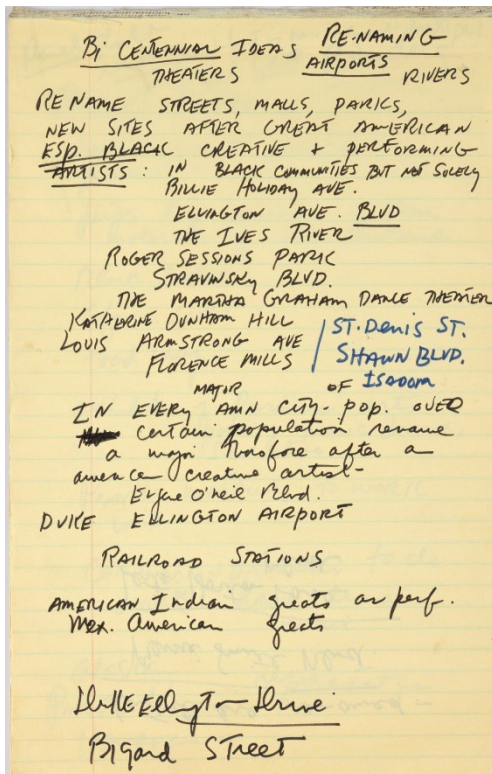 Bi CENTENNIAL IDEAS RE-NAMING
THEATERS AIRPORTS RIVERS
RE NAME STREETS, MALLS, PARKS,
NEW SITES AFTER GREAT AMERICAN
ESP. BLACK CREATIVE + PERFORMING
ARTISTS: IN BLACK COMMUNITIES BUT NOT SOLELY
BILLIE HOLIDAY AVE.
ELLINGTON AVE. BLVD
THE IVES RIVER
ROGER SESSIONS PARK
STRAVINSKY BLVD.
THE MARTHA GRAHAM DANCE THEATER
KATHERINE DUNHAM HILL
LOUIS ARMSTRONG AVE
FLORENCE MILLS
ST. Denis ST.
SHAWN BLVD.
ISADORA
MAJOR OF
IN EVERY AMN CITY - POP. OVER
certain population rename
a major thorofore after a
american creative artist -
Eugene O'neil Blvd.
DUKE ELLINGTON AIRPORT
RAILROAD STATIONS
AMERICAN Indian greats or perf.
Mex. American greats
Duke Ellington Drive
Bigard Street